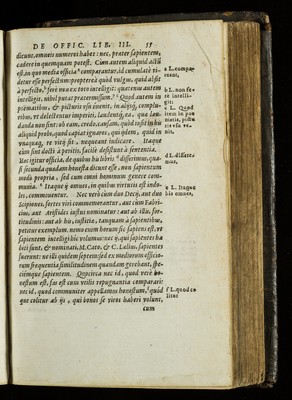 DE OFFIC. LIB. III. 55
dicunt, omnes numeros habet: nec, præter sapientem,
cadere in quemquam potest. Cum autem aliquid actū
est, in quo media officia ᵃ comparantur, id cumulatè vi-
detur esse perfectum: propterea quòd vulgus, quid absit
à perfecto, ferè non ex toto intelligit: quatenus autem
intelligit, nihil putat prætermissum. Quod autem in
poëmatibus, & picturis vsu euenit, in aliisq́; complu-
ribus, vt delectentur imperiti, laudentq́; ea, quæ lau-
danda non sint: ob eam, credo, causam, quòd insit in his
aliquid probi, quod capiat ignaros, qui ijdem, quid in
vnaquaq́; re vitij sit, nequeant iudicare. Itaque
cùm sint docti à peritis, facilè desistunt à sententia.
Hæc igitur officia, de quibus his libris ᵈ disserimus, qua-
si secunda quædam honesta dicunt esse, non sapientum
modò propria, sed cum omni hominum genere com-
munia. ᵉ Itaque ijs omnes, in quibus virtutis est indo-
les, commouentur. Nec verò cùm duo Decij, aut duo
Scipiones, fortes viri commemorantur, aut cùm Fabri-
cius, aut Aristides iustus nominatur: aut ab illis, for-
titudinis: aut ab his, iustitiæ, tanquam à sapientibus,
petitur exemplum. nemo enim horum sic sapiens est, vt
sapientem intelligi volumus: nec ij, qui sapientes ha-
biti sunt, & nominati, M. Cato, & C. Lælius, sapientes
fuerunt: ne illi quidem septem: sed ex mediorum officio-
rum frequentia similitudinem quandam gerebant, spe-
ciemque sapientum. Quocirca nec id, quod verè ho-
nestum est, fas est cum vtilis repugnantia comparari:
nec id, quod communiter appellamus honestum, ᶠ quod
que colitur ab ijs, qui bonos se viros haberi volunt,
cum
a L. compa-
rent,
b L. non fe-
re intelli-
git:
c L. Quod
item in poë
matis, pictu
ris usu ve-
nit,
d L. dissere
mus,
e L. Itaque
his omnes,
f L. quod co
litur